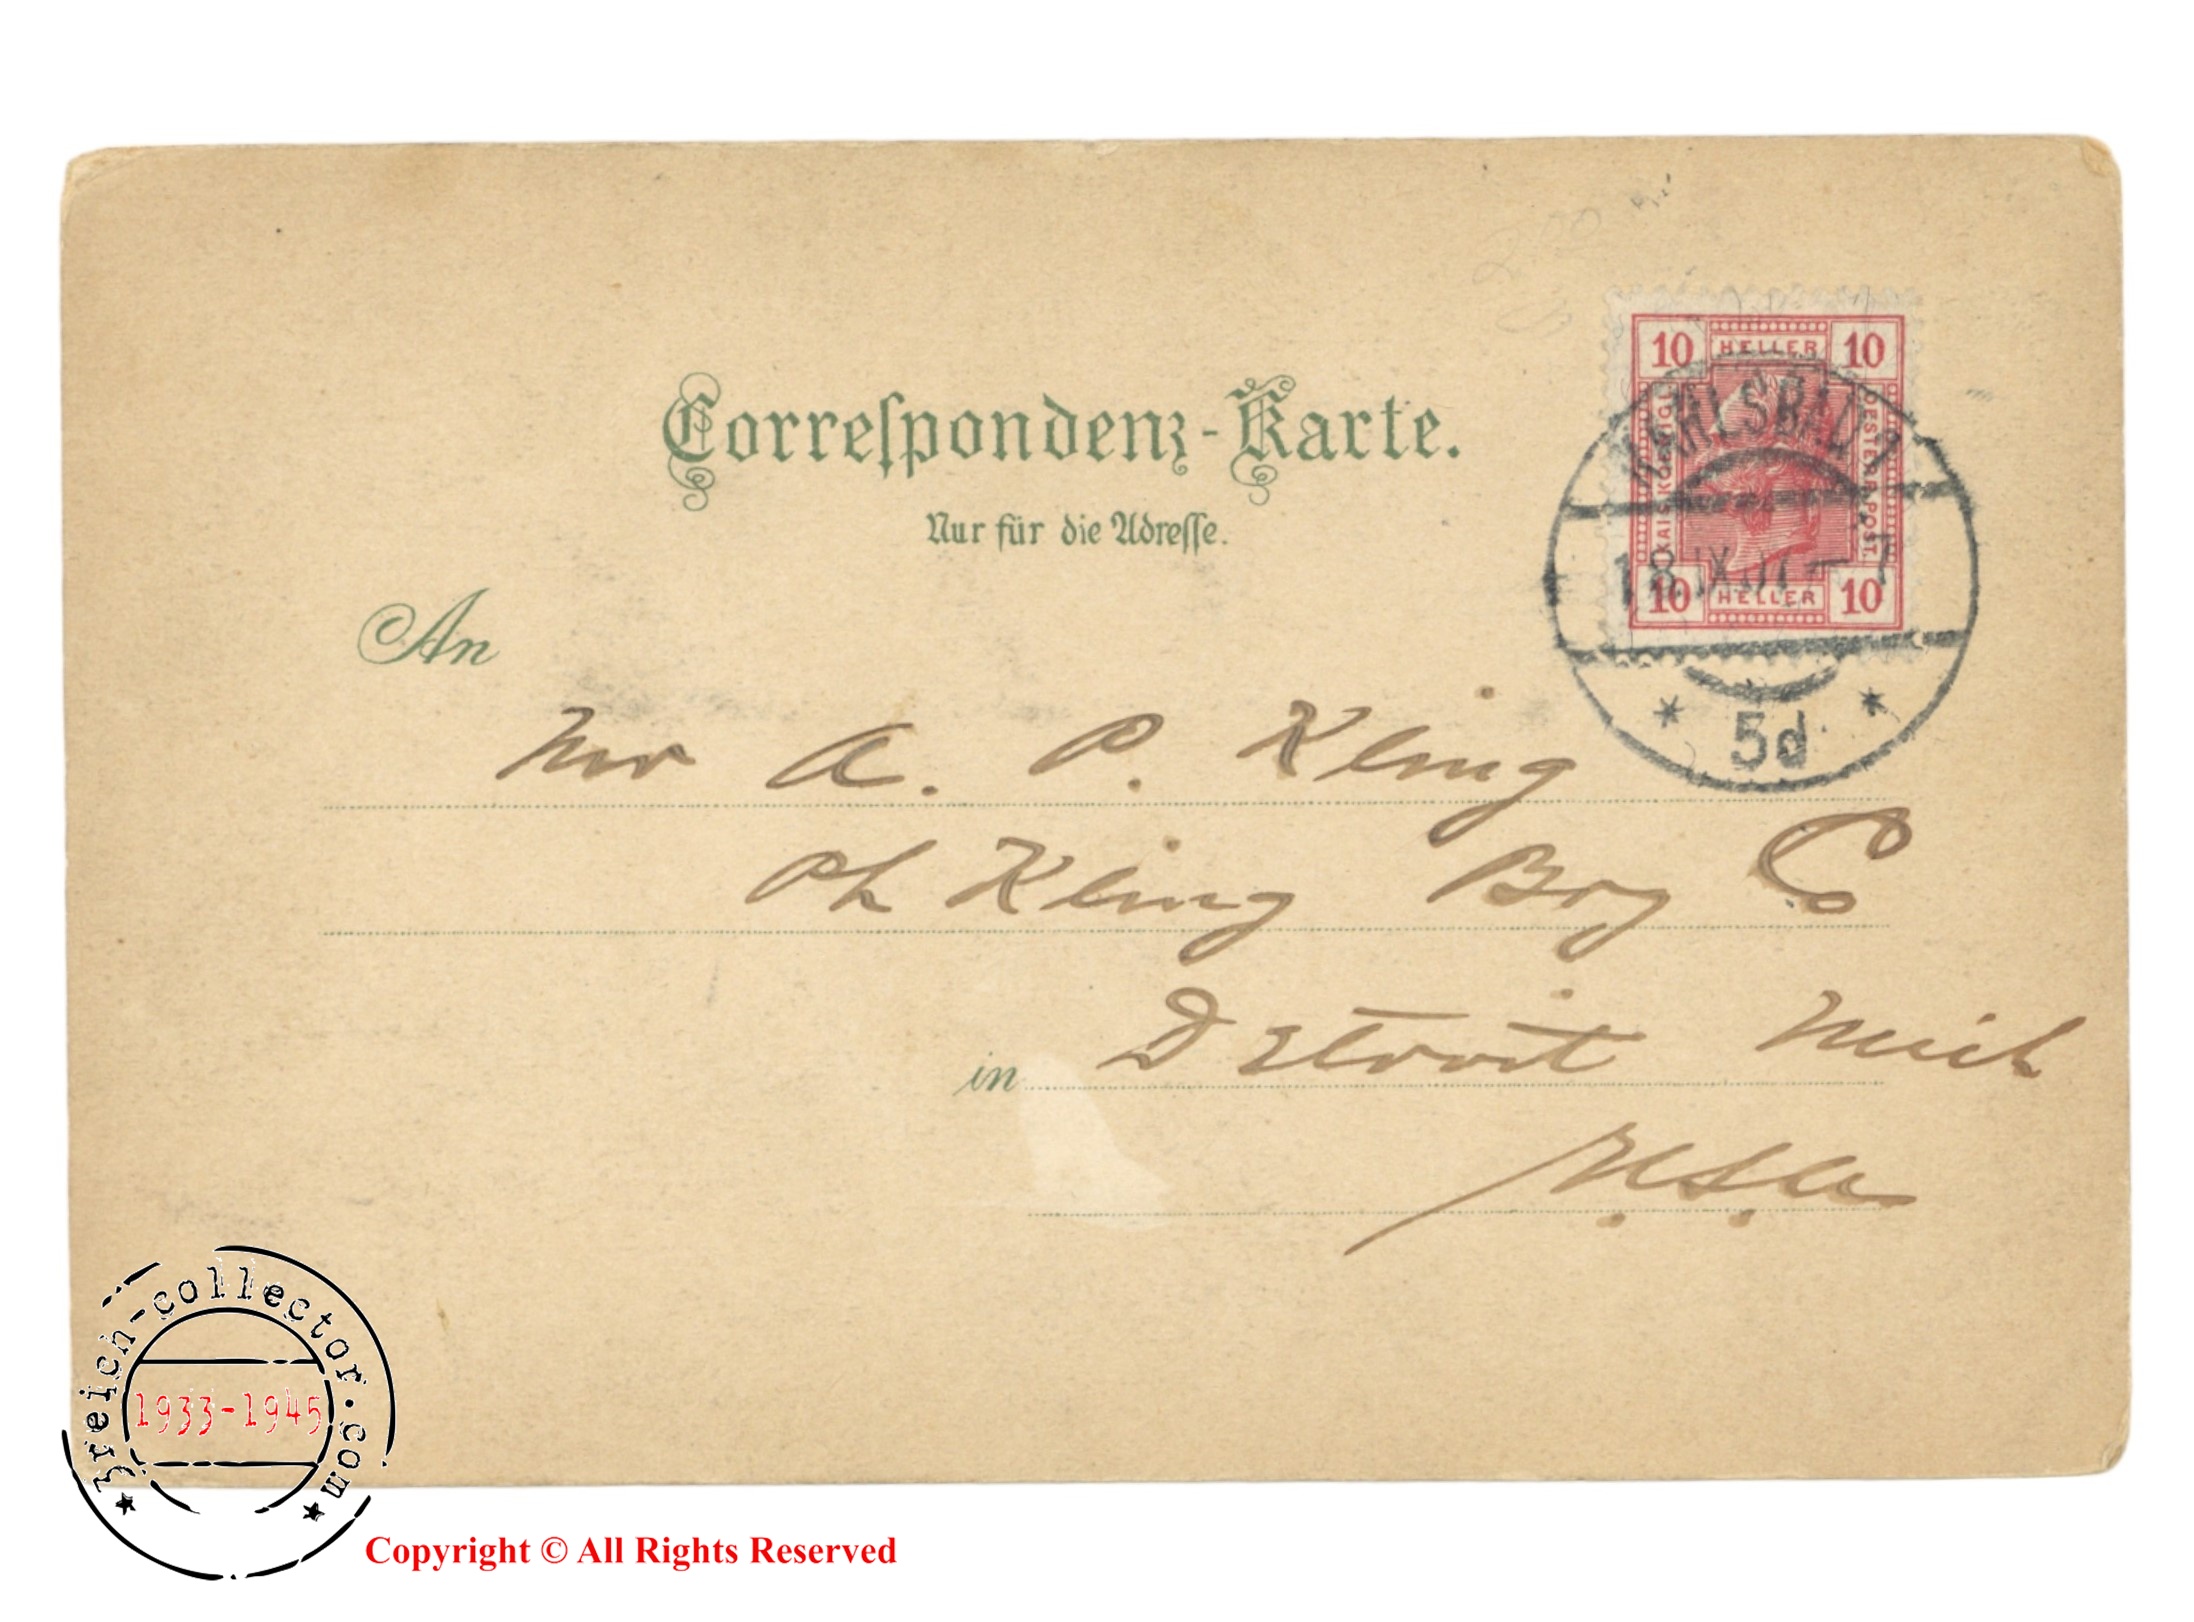 Correſpondenz-Karte.
Nur für die Adreſſe.
10 HELLER 10
KAIS. KÖNIGL.
OESTERR. POST.
10 HELLER 10
KARLSBAD
18 IX 07 - 7
* 5d *
An
Mr A. P. Kling
Ph Kling Brg Co
in Detroit Mich
U.S.A
3reich-collector.com
1933-1945
Copyright © All Rights Reserved